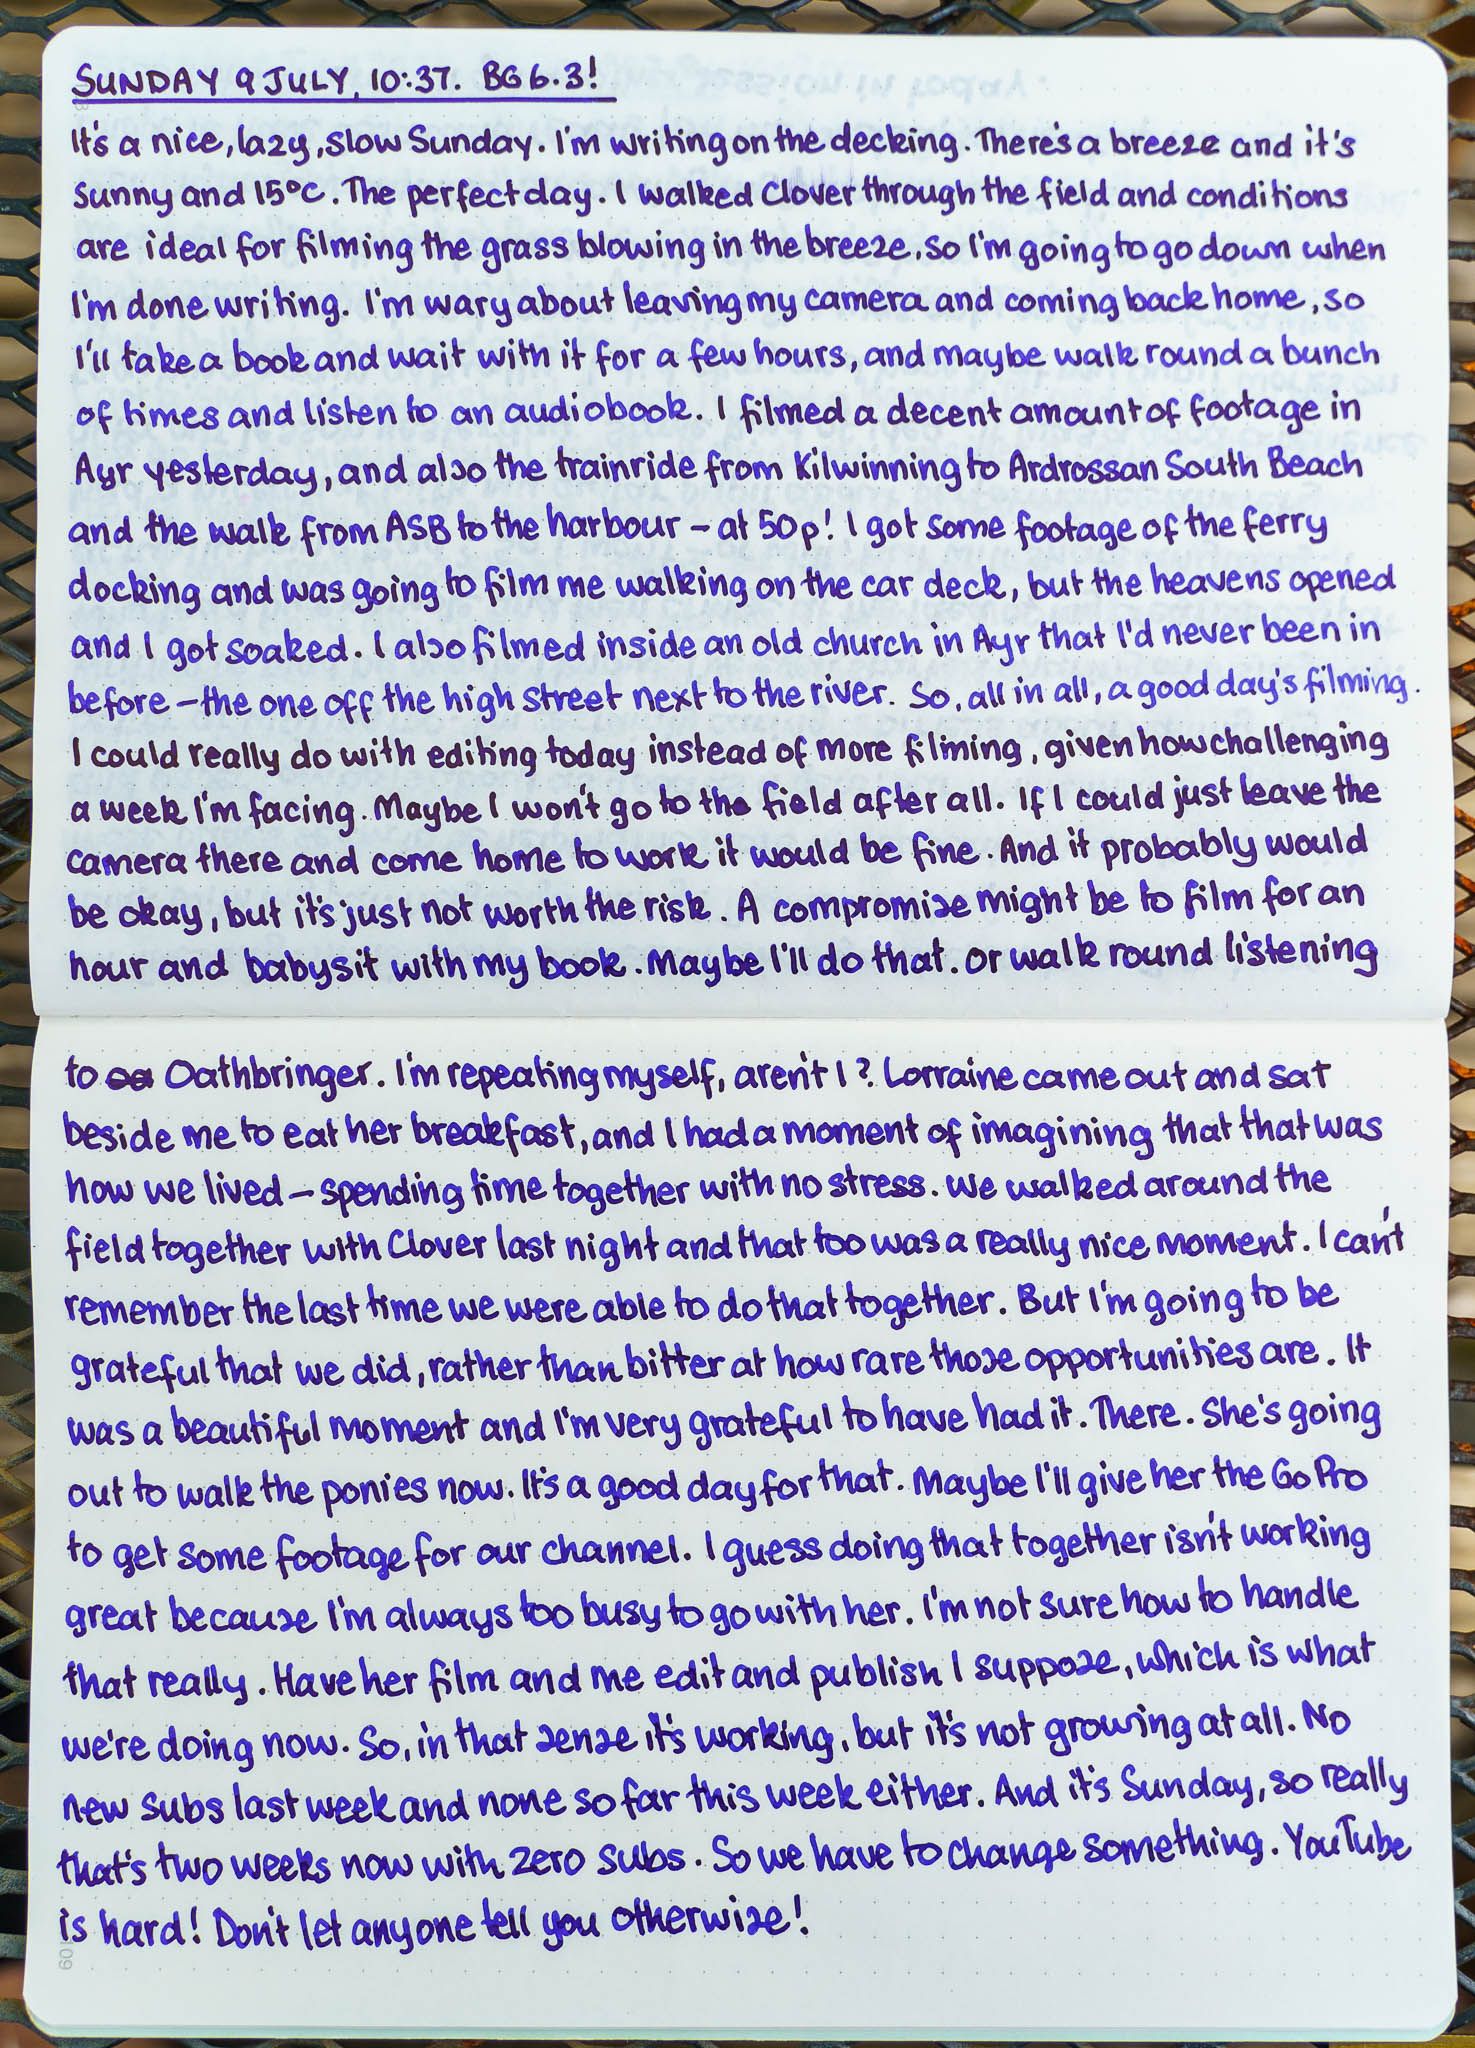 SUNDAY 9 JULY, 10:37. BG 6.3!
It's a nice, lazy, slow Sunday. I'm writing on the decking. There's a breeze and it's
sunny and 15°C. The perfect day. I walked Clover through the field and conditions
are ideal for filming the grass blowing in the breeze, so I'm going to go down when
I'm done writing. I'm wary about leaving my camera and coming back home, so
I'll take a book and wait with it for a few hours, and maybe walk round a bunch
of times and listen to an audiobook. I filmed a decent amount of footage in
Ayr yesterday, and also the trainride from Kilwinning to Ardrossan South Beach
and the walk from ASB to the harbour – at 50p! I got some footage of the ferry
docking and was going to film me walking on the car deck, but the heavens opened
and I got soaked. I also filmed inside an old church in Ayr that I'd never been in
before – the one off the high street next to the river. So, all in all, a good day's filming.
I could really do with editing today instead of more filming, given how challenging
a week I'm facing. Maybe I won't go to the field after all. If I could just leave the
camera there and come home to work it would be fine. And it probably would
be okay, but it's just not worth the risk. A compromise might be to film for an
hour and babysit with my book. Maybe I'll do that. Or walk round listening
to Oathbringer. I'm repeating myself, aren't I? Lorraine came out and sat
beside me to eat her breakfast, and I had a moment of imagining that that was
how we lived – spending time together with no stress. We walked around the
field together with Clover last night and that too was a really nice moment. I can't
remember the last time we were able to do that together. But I'm going to be
grateful that we did, rather than bitter at how rare those opportunities are. It
was a beautiful moment and I'm very grateful to have had it. There. She's going
out to walk the ponies now. It's a good day for that. Maybe I'll give her the GoPro
to get some footage for our channel. I guess doing that together isn't working
great because I'm always too busy to go with her. I'm not sure how to handle
that really. Have her film and me edit and publish I suppose, which is what
we're doing now. So, in that sense it's working, but it's not growing at all. No
new subs last week and none so far this week either. And it's Sunday, so really
that's two weeks now with zero subs. So we have to change something. YouTube
is hard! Don't let anyone tell you otherwise!
60